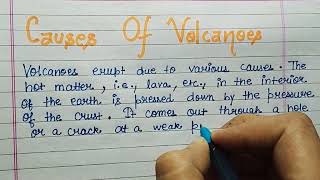 Causes Of Volcanoes
Volcanoes erupt due to various causes. The
hot matter, i.e., lava, etc., in the interior
of the earth is pressed down by the pressure
of the crust. It comes out through a hole
or a crack at a weak p